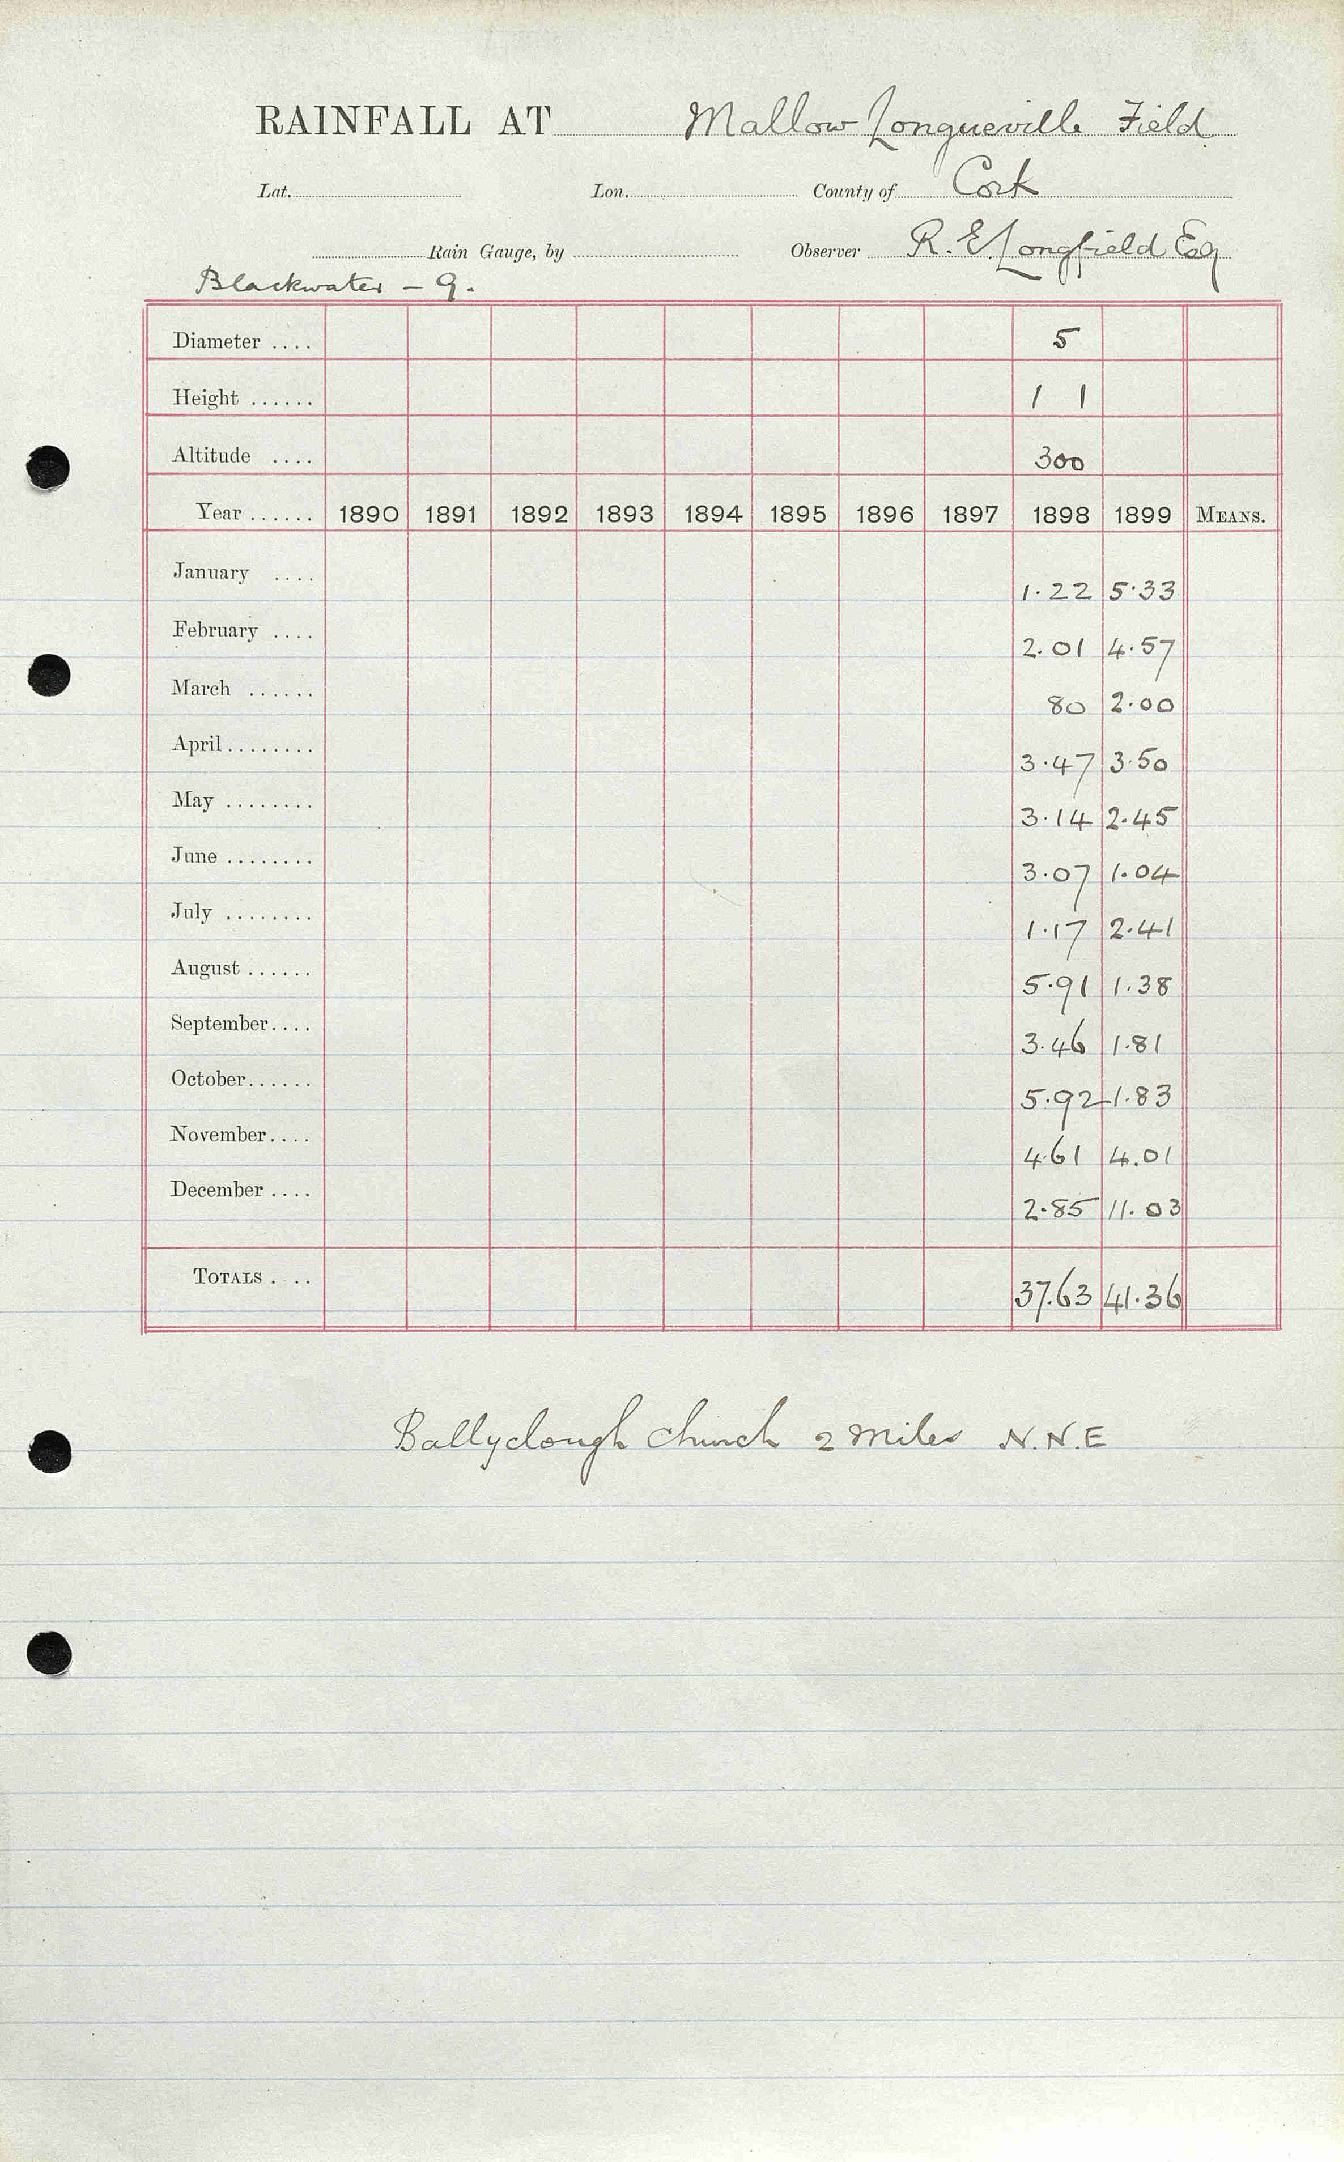 RAINFALL AT Mallow Longueville Field
Lat. Lon. County of Cork
Rain Gauge, by Observer R. E. Longfield Esq
Blackwater – 9.
Diameter .... 5
Height ...... 1 1
Altitude .... 300
Year ...... 1890 1891 1892 1893 1894 1895 1896 1897 1898 1899 MEANS.
January .... 1.22 5.33
February .... 2.01 4.57
March ...... 80 2.00
April ........ 3.47 3.50
May ........ 3.14 2.45
June ........ 3.07 1.04
July ........ 1.17 2.41
August ...... 5.91 1.38
September.... 3.46 1.81
October...... 5.92 1.83
November.... 4.61 4.01
December .... 2.85 11.03
TOTALS . .. 37.63 41.36
Ballyclough Church 2 miles N.N.E